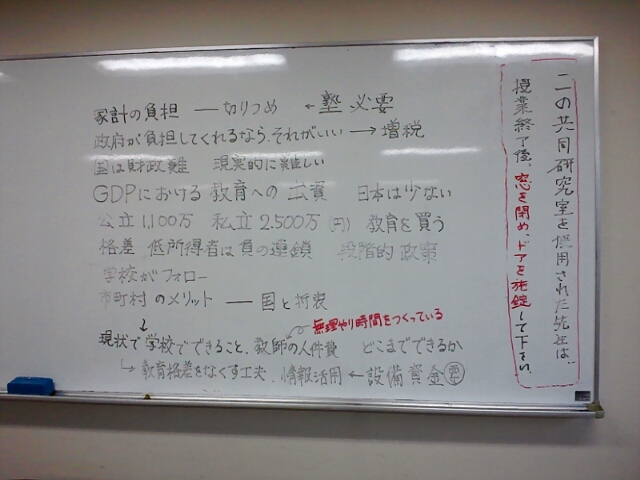 家計の負担 ― 切りつめ ← 塾 必要
政府が負担してくれるなら、それがいい → 増税
国は財政難 現実的に難しい
GDPにおける 教育への 出資 日本は少ない
公立1,100万 私立2,500万(円) 教育を買う
格差 低所得者は負の連鎖 段階的 政策
学校がフォロー
市町村 のメリット ― 国と折衷
無理やり時間をつくっている
現状で学校でできること、教師の人件費 どこまでできるか
↳ 教育格差をなくす工夫、情報活用 ← 設備資金 要
この共同研究室を使用された先生は、
授業終了後、窓を閉め、ドアを施錠して下さい。